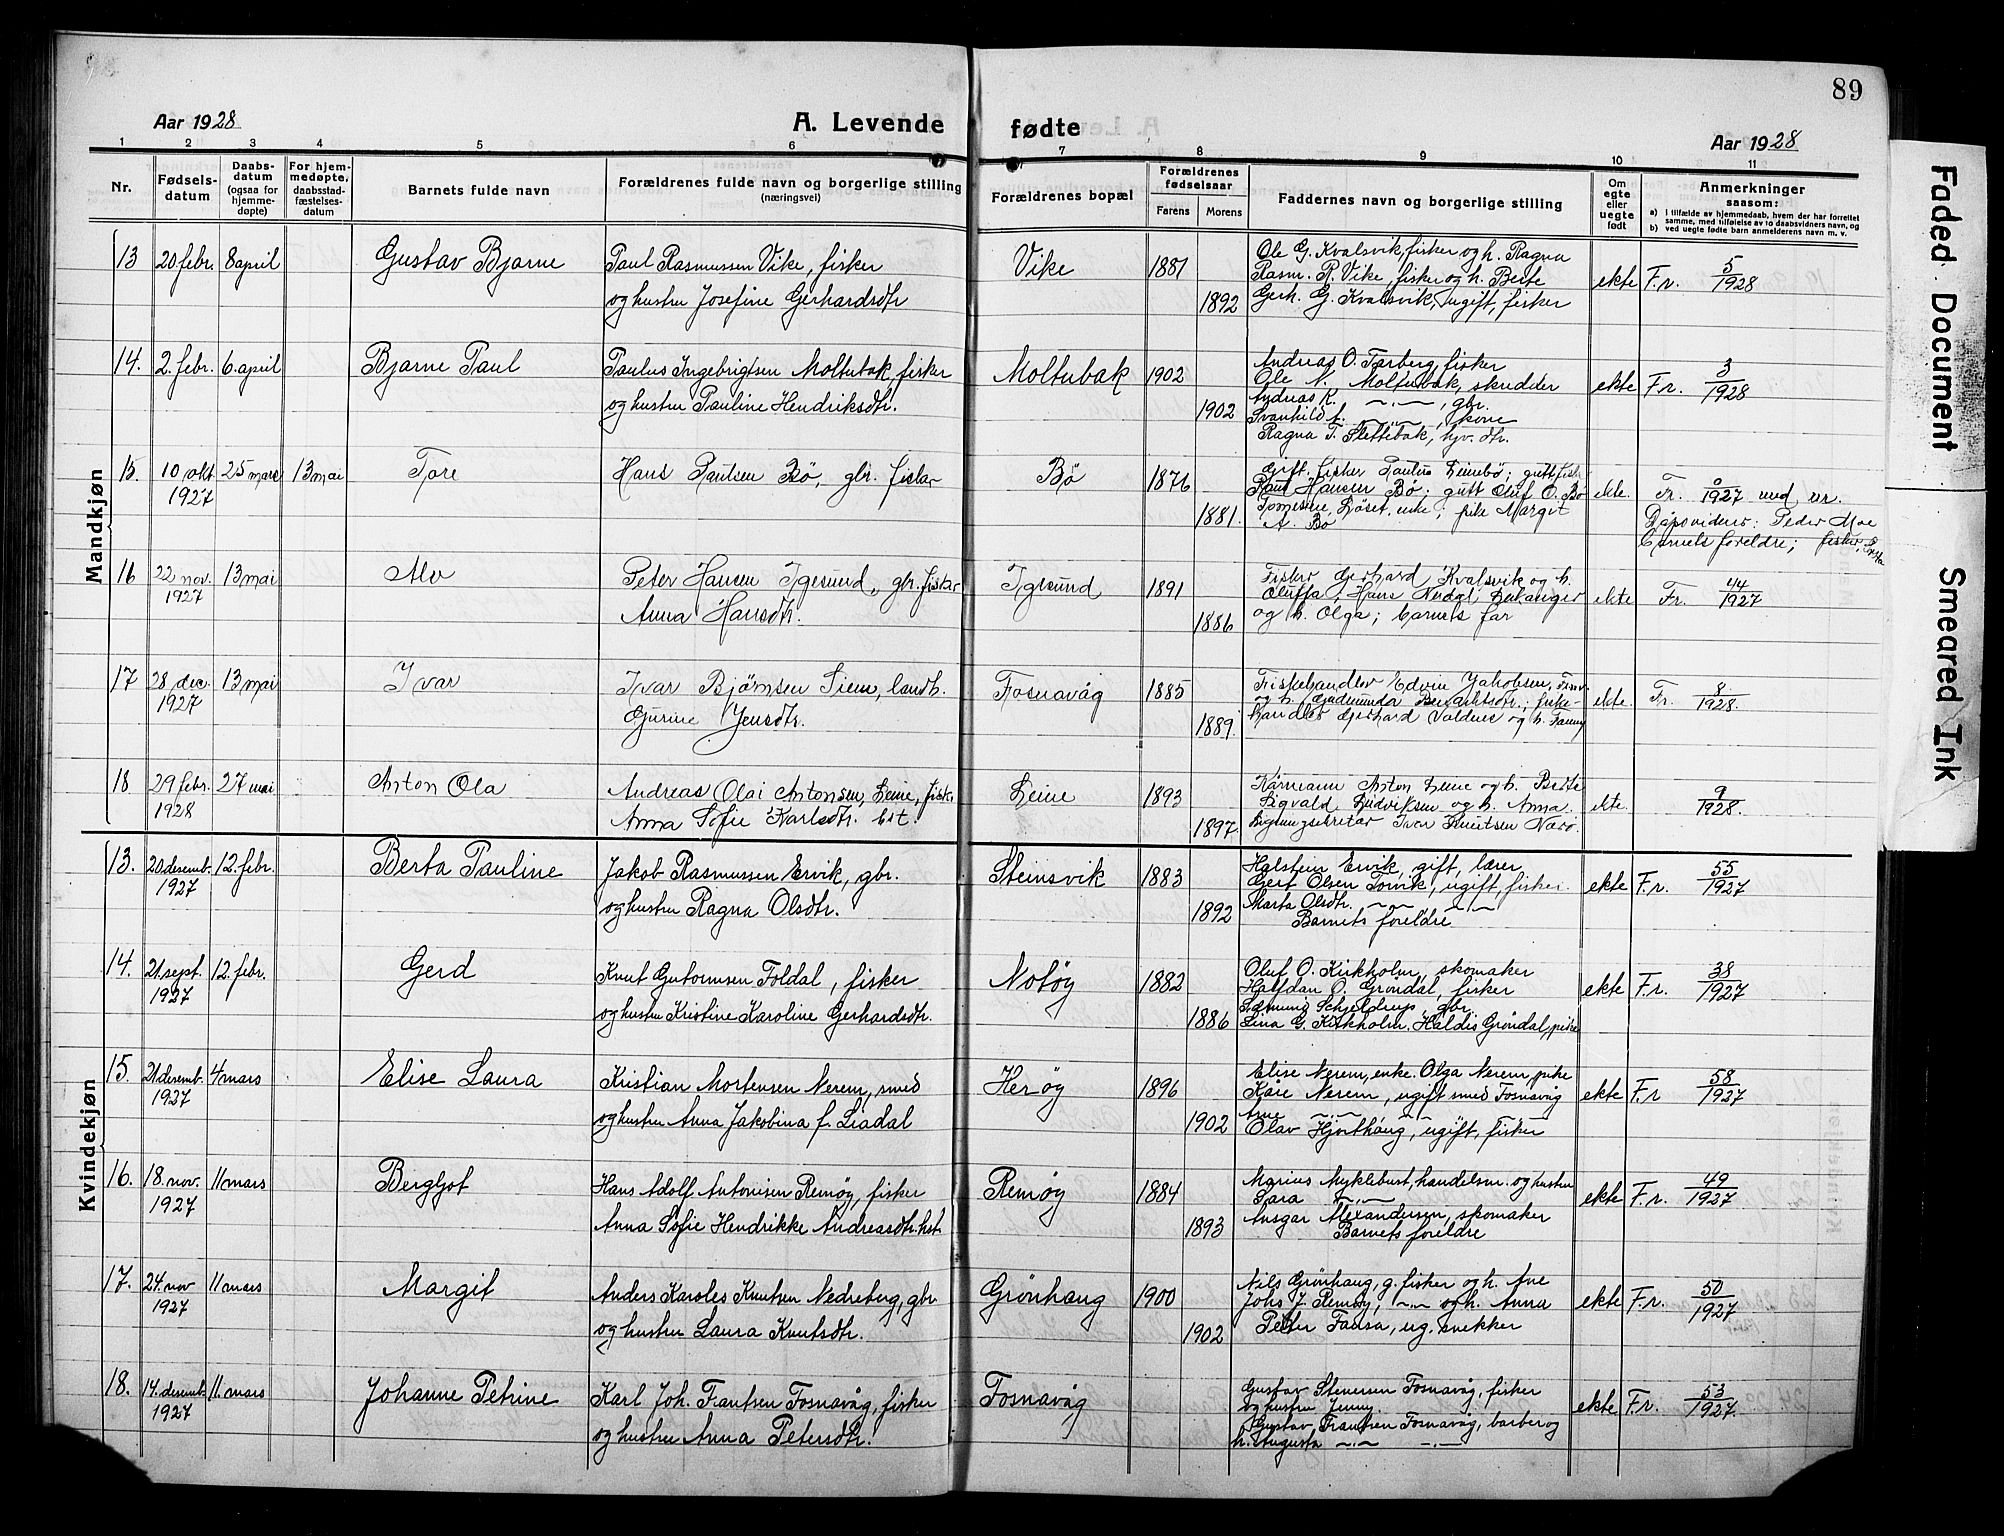 89
Aar 1928
A. Levende fødte
Aar 1928
1 2 3 4 5 6 7 8 9 10 11
Nr.
Fødsels-
datum
Daabs-
datum
(ogsaa for
hjemme-
døpte)
For hjem-
medøpte,
daabsstad-
fæstelses-
datum
Barnets fulde navn
Forældrenes fulde navn og borgerlige stilling
(næringsvei)
Forældrenes bopæl
Forældrenes
fødselsaar
Farens Morens
Faddernes navn og borgerlige stilling
Om
egte
eller
uegte
født
Anmerkninger
saasom:
a) I tilfælde av hjemmedaab, hvem der har forrettet
samme, med tilføielse av to daabsvidners navn, og
b) ved uegte fødte barn anmelderens navn m. v.
Mandkjøn
13 20 febr. 8 april Gustav Bjarne
Paul Rasmussen Vike, fisker
og hustru Josefine Gerhardsdtr
Vike 1881 1892
Ole G. Kvalsvik, fisker og h. Ragna
Rasm. P. Vike, fisker og h. Berte
Gerh. G. Kvalsvik, ugift, fisker
ekte F.r. 5/1928
14. 2. febr. 6 april Bjarne Paul
Paulus Ingebrigtsen Moltubak, fisker
og hustru Pauline Hendriksdtr.
Moltubak 1902 1902
Andreas O. Tarberg, fisker
Ole N. Moltubak, skredder
Andreas K. —"—, gbr.
Svanhild —"—, kone
Ragna T. Slettebak, hjv. dtr.
ekte F.r. 3/1928
15. 10 okt 1927 25 mars 13 mai Tore
Hans Paulsen Bø, gbr. fisker
Bø 1876 1881.
Gift. fisker Paulus Leinebø; gutt
Paul Hansen Bø; gutt Oluf O. Bø
Løset, enke; pike Margit
A. Bø
ekte. Fr. 1927 med nr.
Dåpsvidner: Peder Moe
barnets foreldre; fisker,
16 22 nov. 1927 13 mai Alv
Peter Hansen Igesund, gbr. fisker
Anna Hansdtr.
Igesund 1891 1886
Fisker Gerhard Kvalsvik og h.
Oluffa; Hans
og h. Olga; barnets far
ekte Fr. 44/1927
17 28 dec. 1927 13 mai Ivar
Ivar Bjørnsen Siem, landh.
Gurine Jensdtr.
Fosnavåg 1885 1889.
Fiskehandler Edvin Jakobsen,
og h. ; fiske-
handler Gerhard Voldnes og h. Fanny
ekte. Fr. 8/1928.
18 29 febr. 1928 27 mai Anton Ola
Andreas Olai Antonsen, Leine, fisk.
Anna Sofie Karlsdtr. hst.
Leine 1893 1897.
Kårmann Anton Leine og h. Berte
Sigvald Ludviksen og h. Anna.
Iver Knutsen Nærø.
ekte. 9/1928.
Kvindekjøn
13. 20 desemb. 1927 12. febr. Berta Pauline
Jakob Rasmussen Ervik, gbr.
og hustru Ragna Olsdtr.
Steinsvik 1883 1892
Halstein Ervik, gift, lærer
Gert Olsen Torvik, ugift, fisker.
Marta Olsdtr. —"— —"—
Barnets foreldre
ekte F.r. 55/1927
14. 21. sept. 1927 12. febr. Gerd
Knut Gutormsen Foldal, fisker
og hustru Kristine Karoline Gerhardsdtr.
Notøy 1882 1886
Oluf O. Kirkholm, skomaker
Halfdan O. Grøndal, fisker
Sæmund Schjeldrup, gbr.
Lina G. Kirkholm. Haldis Grøndal, pike
ekte F.r. 38/1927
15. 21. desemb. 1927 4 mars Elise Laura
Kristian Mortensen Nerem, smed
og hustru Anna Jakobina f. Liadal
Herøy 1896 1902
Elise Nerem, enke. Olga Nerem, pike
Kåre Nerem, ugift smed Fosnavåg
Arne —"— —"—
Olav Hjorthaug, ugift, fisker
ekte F.r 58/1927
16. 18. nov. 1927 11 mars Bergljot
Hans Adolf Antonisen Remøy, fisker
Anna Sofie Hendrikke Andreasdtr. hst.
Remøy 1884 1893
Marius Myklebust, handelsm. og hustru
Sara —"—
Ansgar Alexandersen, skomaker
Barnets foreldre
ekte F.r. 49/1927
17. 24. nov 1927 11 mars Margit
Anders Karoles Knutsen Nedreberg, gbr
og hustru Laura Knutsdtr.
Grønhaug 1900 1902
Nils Grønhaug, g. fisker og h. Ane
Johs J. Remøy, —"— og h. Anna
Petter Fausa, ug. snekker
ekte F.r. 50/1927
18. 14. desemb. 1927 11. mars Johanne Petrine
Karl Joh. Frantsen Fosnavåg, fisker
og hustru Anna Petersdtr.
Fosnavåg
Gustav Stenersen Fosnavåg, fisker
og hustru Jenny.
Gustav Frantsen Fosnavåg, barber og
h. Augusta —"— —"—
ekte F.r. 53/1927.
Faded Document
Smeared Ink